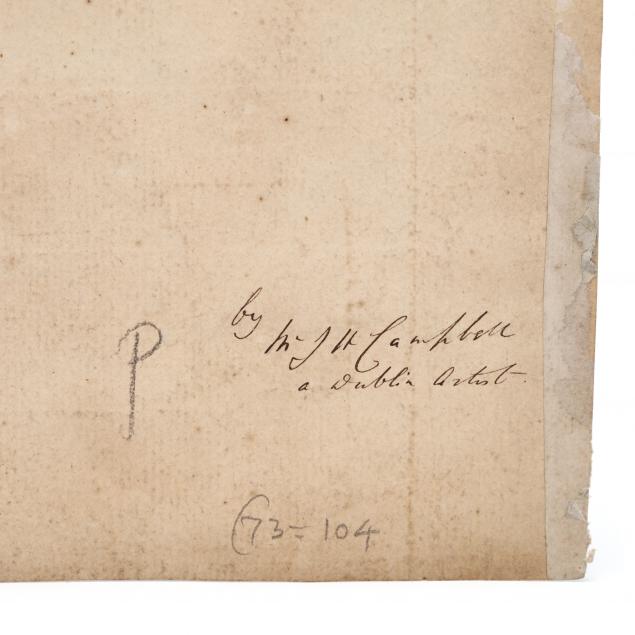 by
Mr J H Campbell
a Dublin Artist.
P
(73 = 104